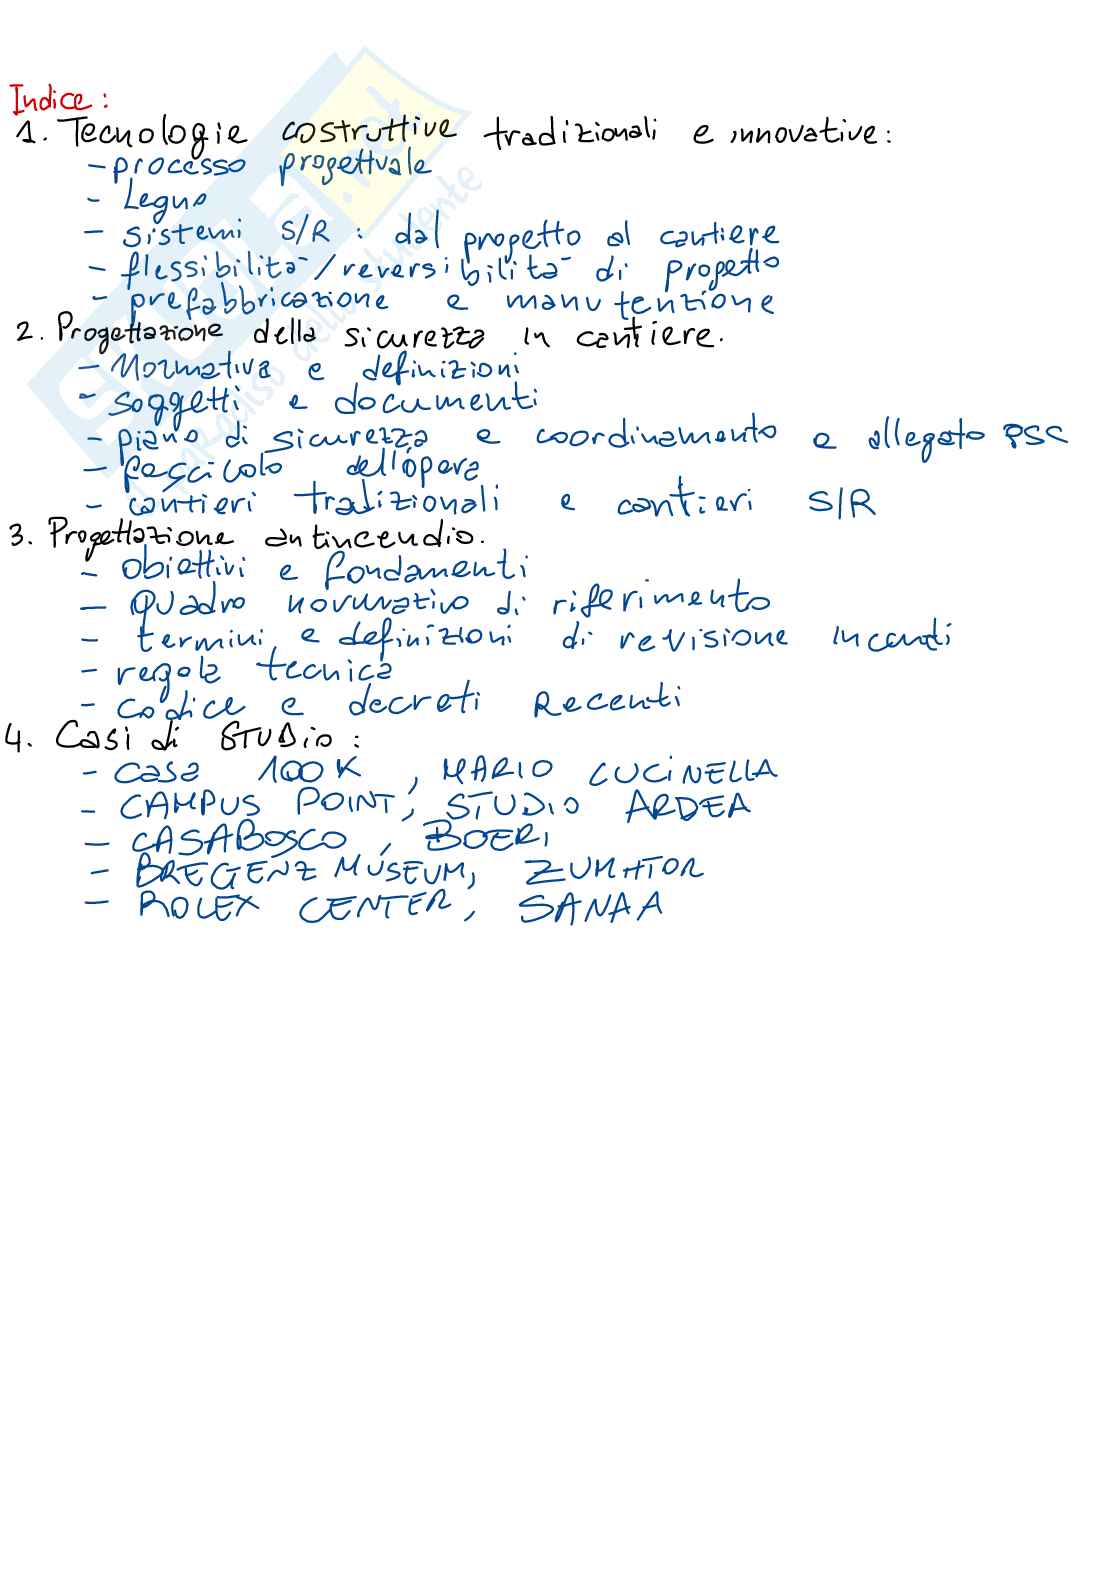 Indice:
1. Tecnologie costruttive tradizionali e innovative:
- processo progettuale
- Legno
- sistemi S/R : dal progetto al cantiere
- flessibilità/reversibilità di progetto
- prefabbricazione e manutenzione
2. Progettazione della sicurezza in cantiere.
- Normativa e definizioni
- soggetti e documenti
- piano di sicurezza e coordinamento e allegato PSC
- fascicolo dell'opera
- cantieri tradizionali e cantieri S/R
3. Progettazione antincendio.
- obiettivi e fondamenti
- quadro normativo di riferimento
- termini e definizioni di revisione incendi
- regola tecnica
- codice e decreti Recenti
4. Casi di STUDio :
- casa 100K, MARIO CUCiNELLA
- CAMPUS POINT, STUDIO ARDEA
- CASABOSCO, BOERI
- BREGENZ MUSEUM, ZUMHTOR
- ROLEX CENTER, SANAA